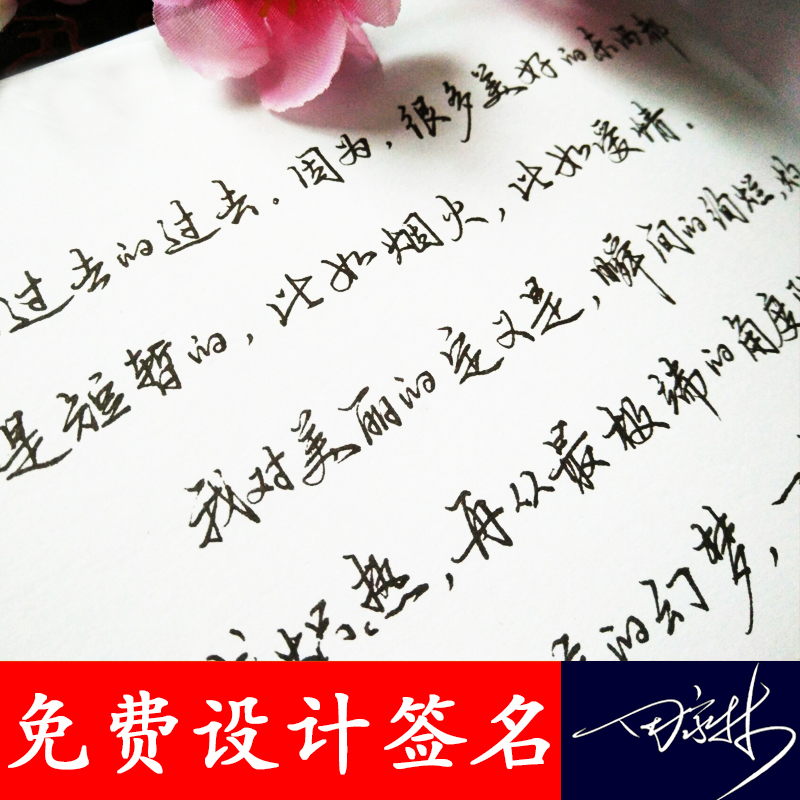 过去的过去。因为，很多美好的东西都
是短暂的，比如烟火，比如爱情。
我对美丽的定义是，瞬间的绚烂，灼
炽热，再以最极端的角度
的幻梦，
免费设计签名